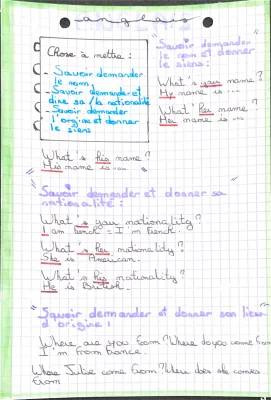 anglais
Chose à mettre :
- Savoir demander
le nom
- Savoir demander et
dire sa/la nationalité
- Savoir demander
l'origine et donner
le siens
"Savoir demander
le nom et donner
le siens :
What's your name?
My name is ...
What's her name?
Her name is ...
What's his name?
His name is ...
"Savoir demander et donner sa
nationalité :
What's your nationality?
I am french = I'm french.
What's her nationality?
She is American.
What's his nationality?
He is British.
"Savoir demander et donner son lieu
d'origine :
Where are you from? Where do you come from
I'm from France.
Julie come from? Where does she comes
from